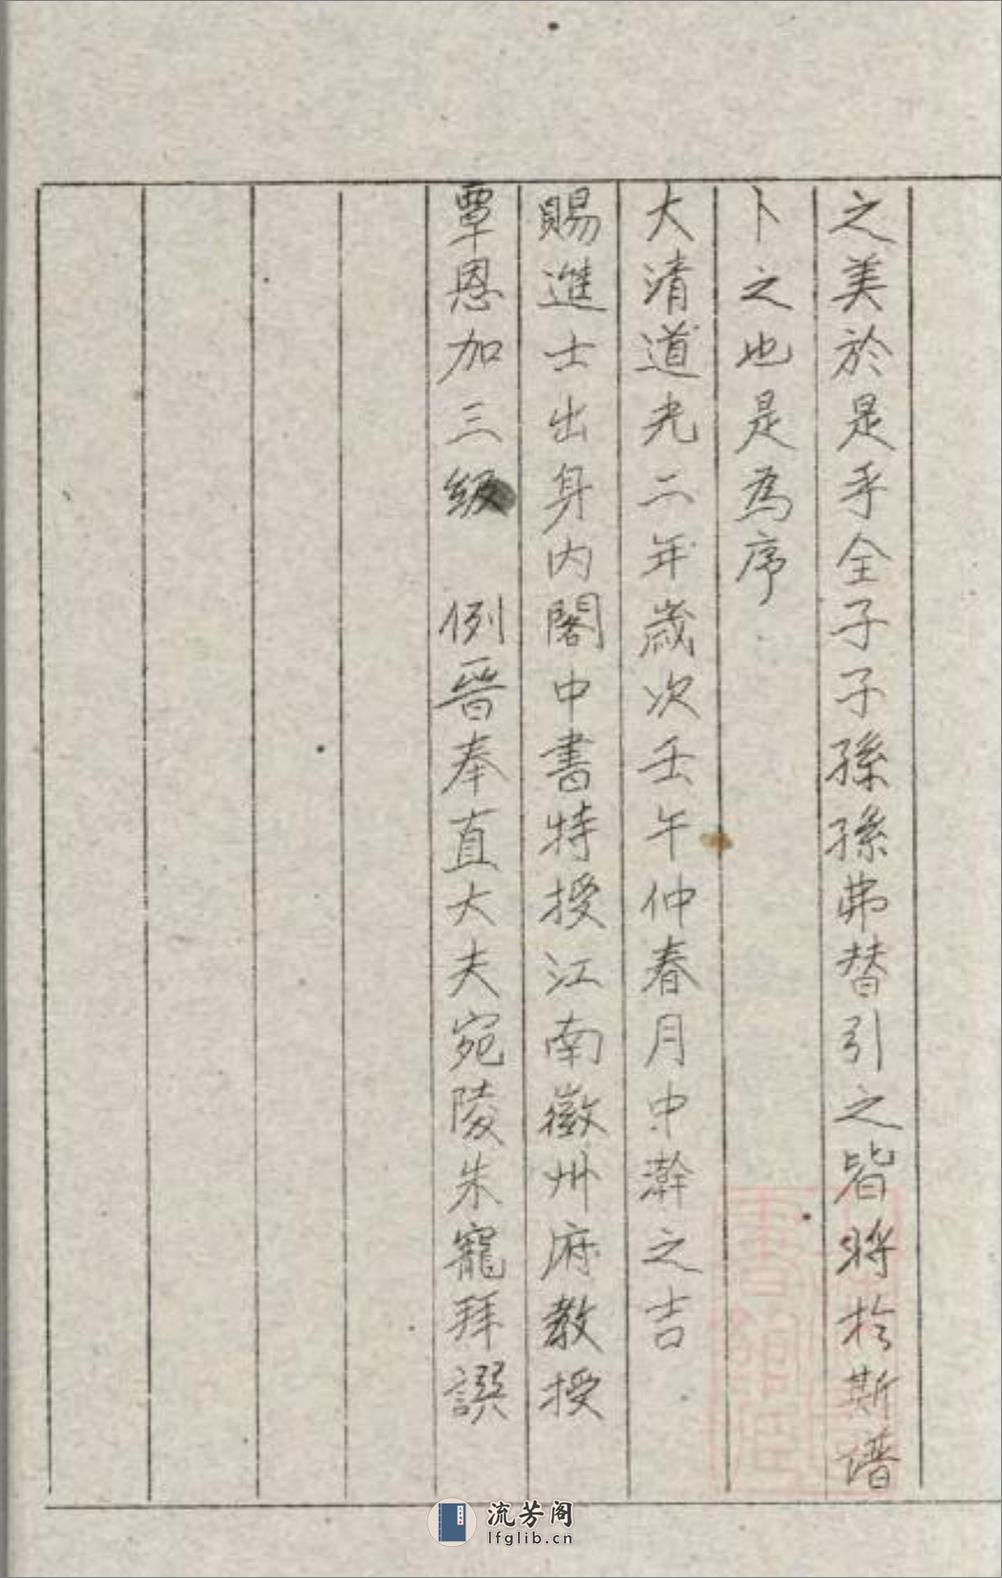 之美於是乎全子子孫孫弗替引之皆將於斯譜
卜之也是為序
大清道光二年歲次壬午仲春月中澣之吉
賜進士出身内閣中書特授江南徽州府教授
覃恩加三級 例晉奉直大夫宛陵朱寵拜譔
流芳阁
lfglib.cn